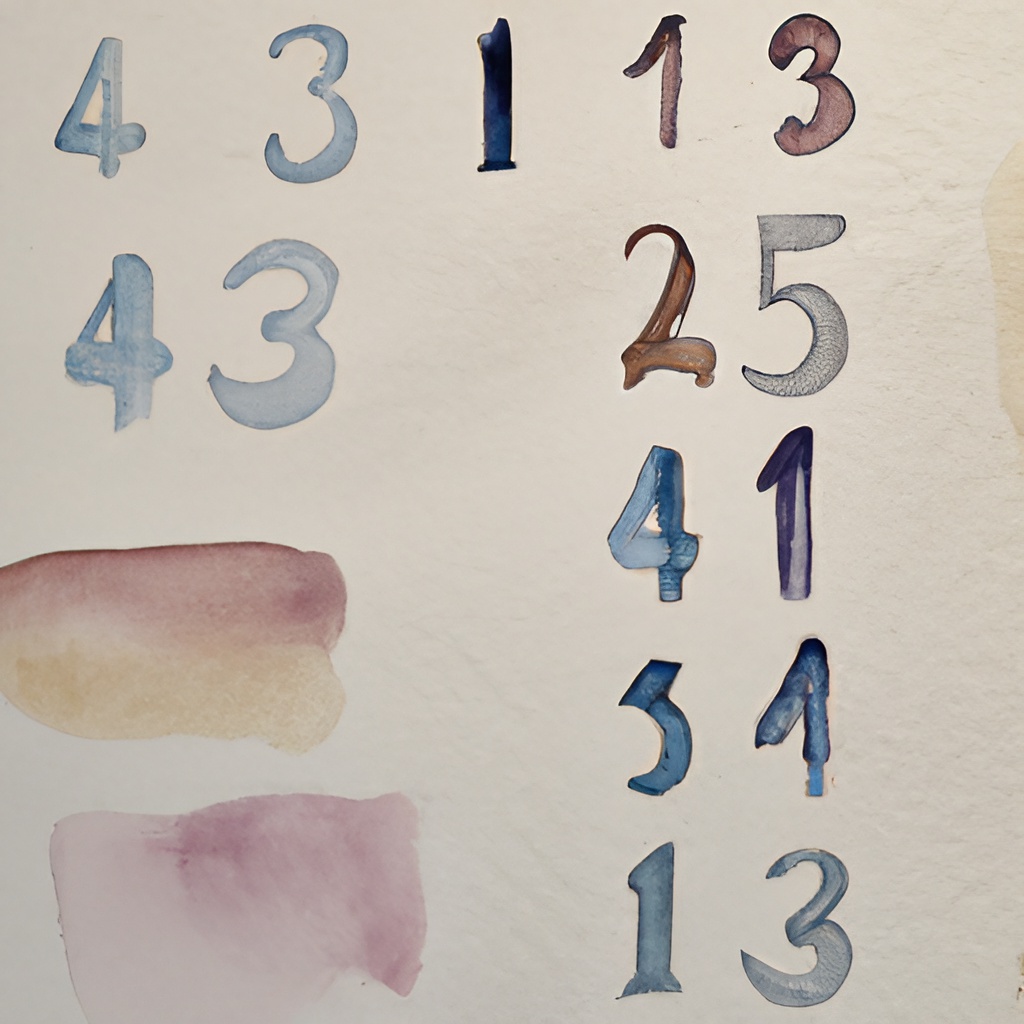 4 3 1 1 3
4 3 2 5
4 1
5 1
1 3